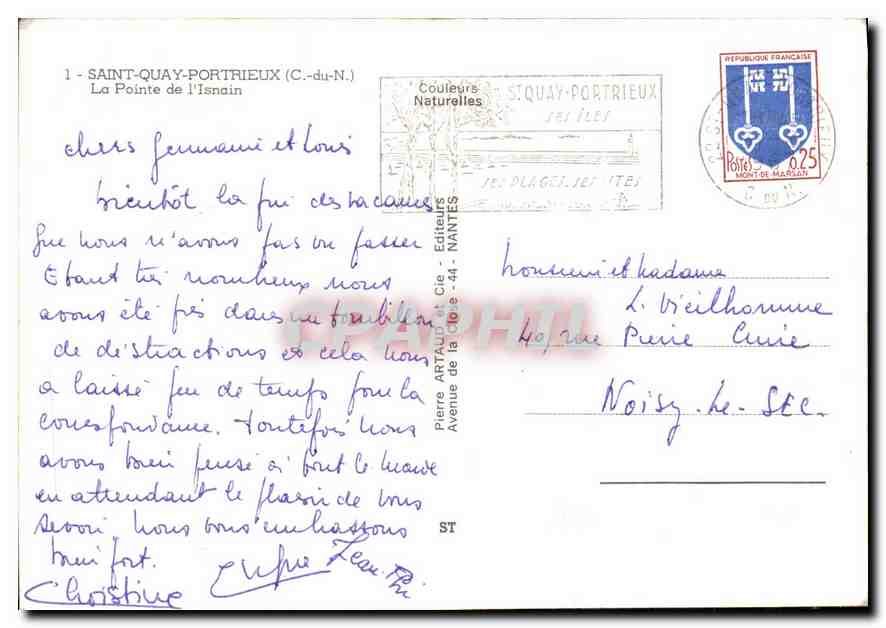 1 - SAINT-QUAY-PORTRIEUX (C.-du-N.)
La Pointe de l'Isnain
Couleurs
Naturelles
ST QUAY-PORTRIEUX
SES ILES
SES PLAGES. SES SITES
REPUBLIQUE FRANÇAISE
POSTES 0,25
MONT-DE-MARSAN
C. DU N.
chers Germaine et Louis
bientôt la fin des vacances
que nous n'avons pas vu passer
Etant très nombreux nous
avons été pris dans un tourbillon
de distractions et cela nous
a laissé peu de temps pour la
correspondance. Toutefois nous
avons bien pensé à tout le monde
en attendant le plaisir de vous
revoir, nous vous embrassons
bien fort.
Christine Jean-Phi
Pierre ARTAUD et Cie - Editeurs
Avenue de la Close - 44 - NANTES
ST
Monsieur et Madame
L. Vieilhomme
40, rue Pierre Curie
Noisy-Le-SEC.
CPAPHIL